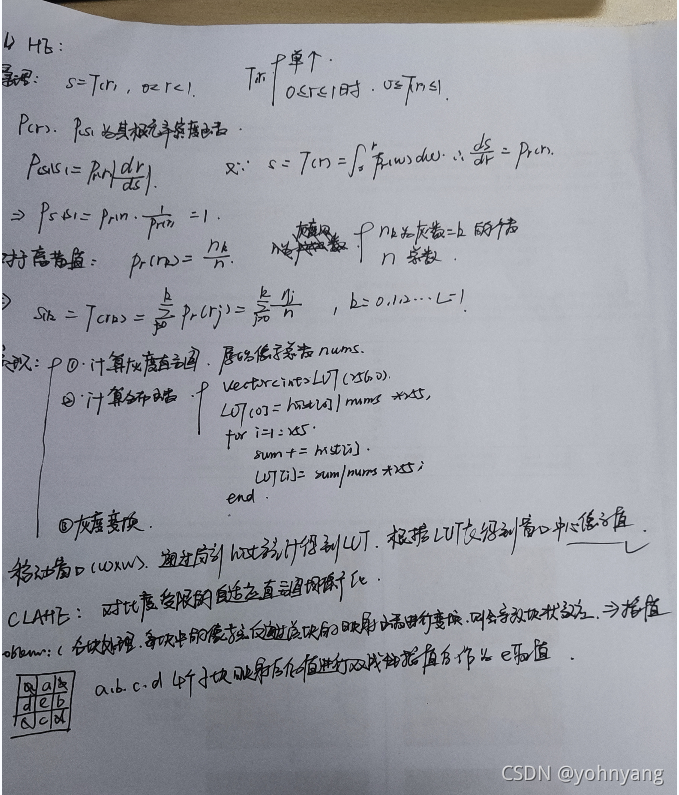 1) HE:
原理: s=T(r), 0≤r≤1. T(r) { 单个.
0≤r≤1时, 0≤T(r)≤1.
P(r), P(s) 为其概率密度函数.
Ps(s)=Pr(r)|dr/ds|. 又∵ s=T(r)=∫₀ʳ Pr(w)dw. ∴ ds/dr = Pr(r).
⇒ Ps(s)=Pr(r)·1/Pr(r) =1.
对于离散值: Pr(rk)= nk/n. { nk为灰数=k 的个数
n 总数.
sk = T(rk) = Σ(j=0→k) Pr(rj) = Σ(j=0→k) nj/n , k=0,1,2…L-1
实现: { ① 计算灰度直方图. 像素总数 nums.
② 计算分布函数 { vector<int> LUT(256,0)
LUT[0]=hist[0]/nums *255,
for i=1:255.
sum += hist[i].
LUT[i]= sum/nums *255;
end.
③ 灰度变换.
移动窗口(w×w). 通过 hist统计得到LUT. 根据LUT 得到窗口中心像素值.
CLAHE: 对比度受限的自适应直方图均衡化.
分块处理, 每块中的像素 通过该块的映射函数进行变换, 则会导致块状效应. ⇒ 插值
a a b
d e b
c d
a.b.c.d 4个子块映射 值进行双线性插值 作为e 值.
CSDN @yohnyang